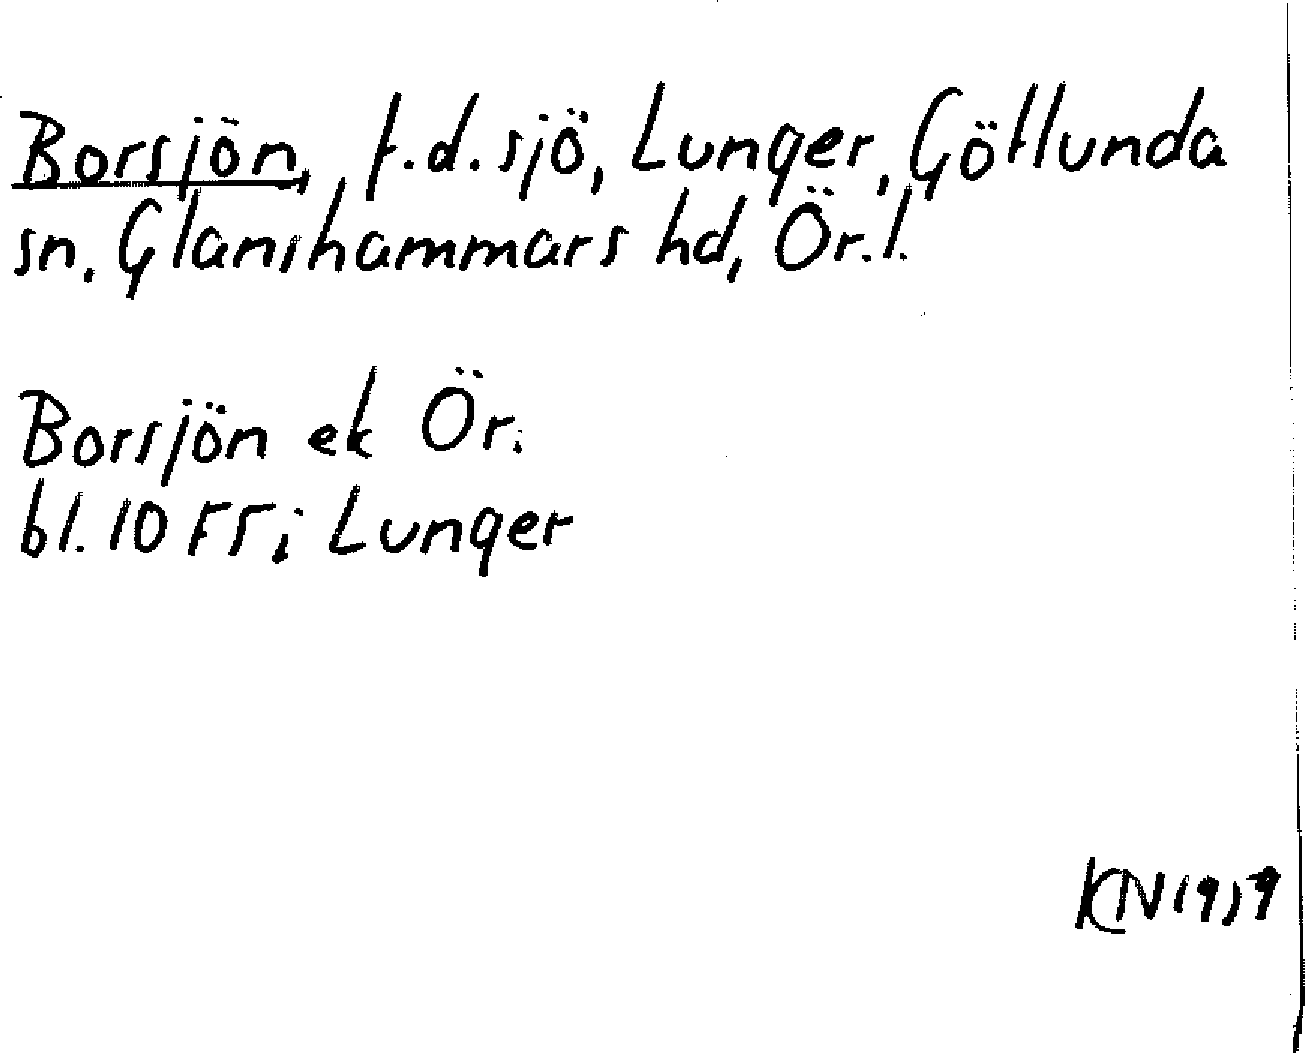 Borsjön, f.d. sjö, Lunger, Götlunda
sn. Glanshammars hd, Ör.l.
Borsjön ek Ör.
bl. 10 FF; Lunger
KN 1919